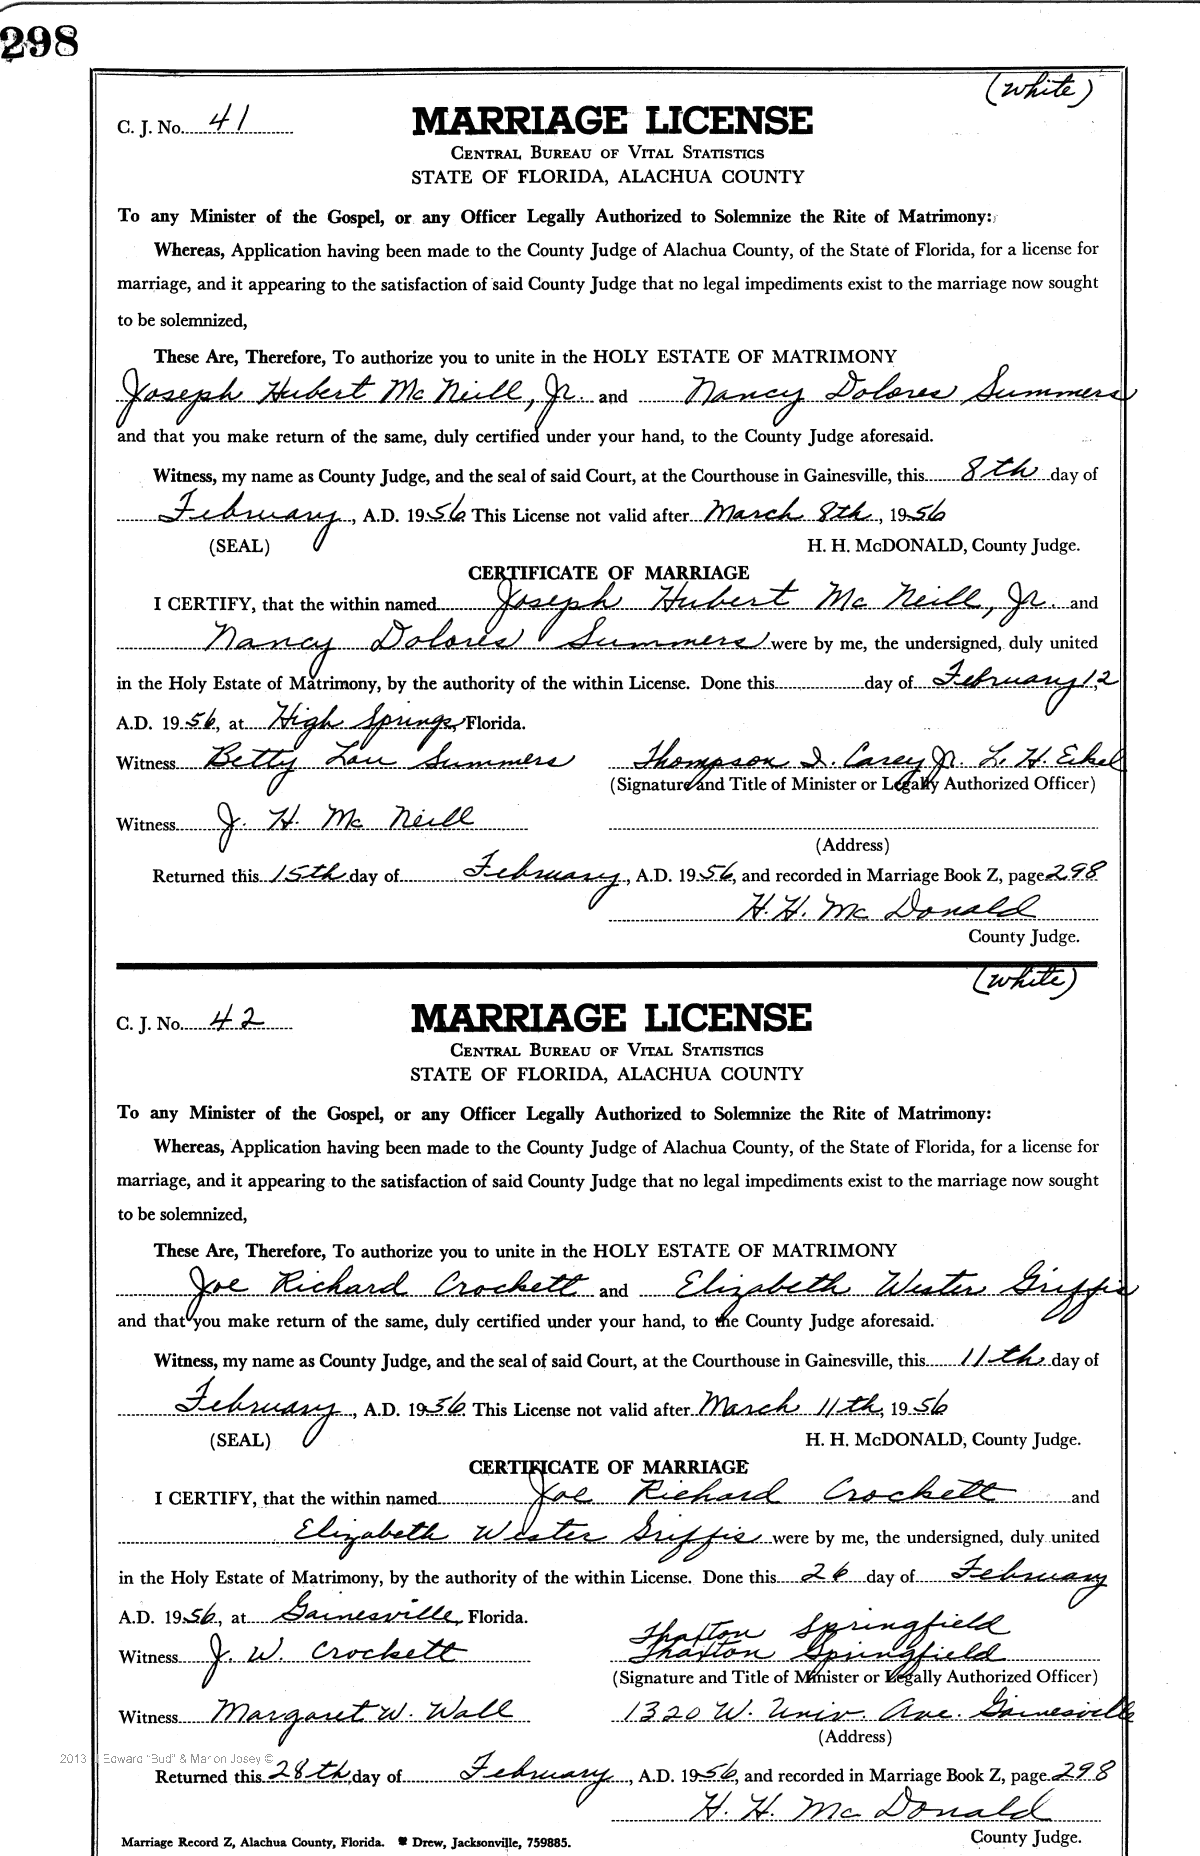 298
(white)
C. J. No. 41
MARRIAGE LICENSE
CENTRAL BUREAU OF VITAL STATISTICS
STATE OF FLORIDA, ALACHUA COUNTY
To any Minister of the Gospel, or any Officer Legally Authorized to Solemnize the Rite of Matrimony:
Whereas, Application having been made to the County Judge of Alachua County, of the State of Florida, for a license for
marriage, and it appearing to the satisfaction of said County Judge that no legal impediments exist to the marriage now sought
to be solemnized,
These Are, Therefore, To authorize you to unite in the HOLY ESTATE OF MATRIMONY
Joseph Hubert McNeill, Jr. and Nancy Dolores Summers
and that you make return of the same, duly certified under your hand, to the County Judge aforesaid.
Witness, my name as County Judge, and the seal of said Court, at the Courthouse in Gainesville, this 8th day of
February, A.D. 1956 This License not valid after March 8th, 1956
(SEAL) H. H. McDONALD, County Judge.
CERTIFICATE OF MARRIAGE
I CERTIFY, that the within named Joseph Hubert McNeill, Jr. and
Nancy Dolores Summers were by me, the undersigned, duly united
in the Holy Estate of Matrimony, by the authority of the within License. Done this day of February 12,
A.D. 1956, at High Springs, Florida.
Witness Betty Lou Summers Thompson I. Carey Jr. L. H.
(Signature and Title of Minister or Legally Authorized Officer)
Witness J. H. McNeill
(Address)
Returned this 15th day of February, A.D. 1956, and recorded in Marriage Book Z, page 298
H. H. McDonald
County Judge.
(white)
C. J. No. 42
MARRIAGE LICENSE
CENTRAL BUREAU OF VITAL STATISTICS
STATE OF FLORIDA, ALACHUA COUNTY
To any Minister of the Gospel, or any Officer Legally Authorized to Solemnize the Rite of Matrimony:
Whereas, Application having been made to the County Judge of Alachua County, of the State of Florida, for a license for
marriage, and it appearing to the satisfaction of said County Judge that no legal impediments exist to the marriage now sought
to be solemnized,
These Are, Therefore, To authorize you to unite in the HOLY ESTATE OF MATRIMONY
Joe Richard Crockett and Elizabeth Wester Griffis
and that you make return of the same, duly certified under your hand, to the County Judge aforesaid.
Witness, my name as County Judge, and the seal of said Court, at the Courthouse in Gainesville, this 11th day of
February, A.D. 1956. This License not valid after March 11th, 1956
(SEAL) H. H. McDONALD, County Judge.
CERTIFICATE OF MARRIAGE
I CERTIFY, that the within named Joe Richard Crockett and
Elizabeth Wester Griffis were by me, the undersigned, duly united
in the Holy Estate of Matrimony, by the authority of the within License. Done this 26 day of February
A.D. 1956, at Gainesville, Florida.
Thaxton Springfield
Witness J. W. Crockett Thaxton Springfield
(Signature and Title of Minister or Legally Authorized Officer)
Witness Margaret W. Wall 1320 W. Univ. Ave. Gainesville
(Address)
2013 Edward "Bud" & Marion Josey ©
Returned this 28th day of February, A.D. 1956, and recorded in Marriage Book Z, page 298
H. H. McDonald
County Judge.
Marriage Record Z, Alachua County, Florida. Drew, Jacksonville, 759885.